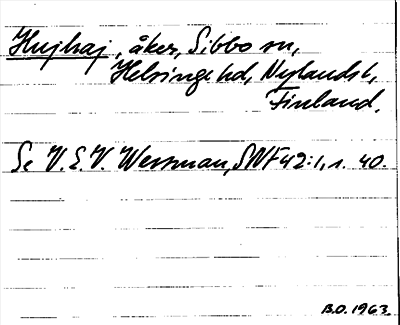 Hujhaj, åker, Sibbo sn,
Helsinge hd, Nylands l,
Finland.
Se V.E.V. Wessman, SNF 42:1, s. 40.
B.O. 1963